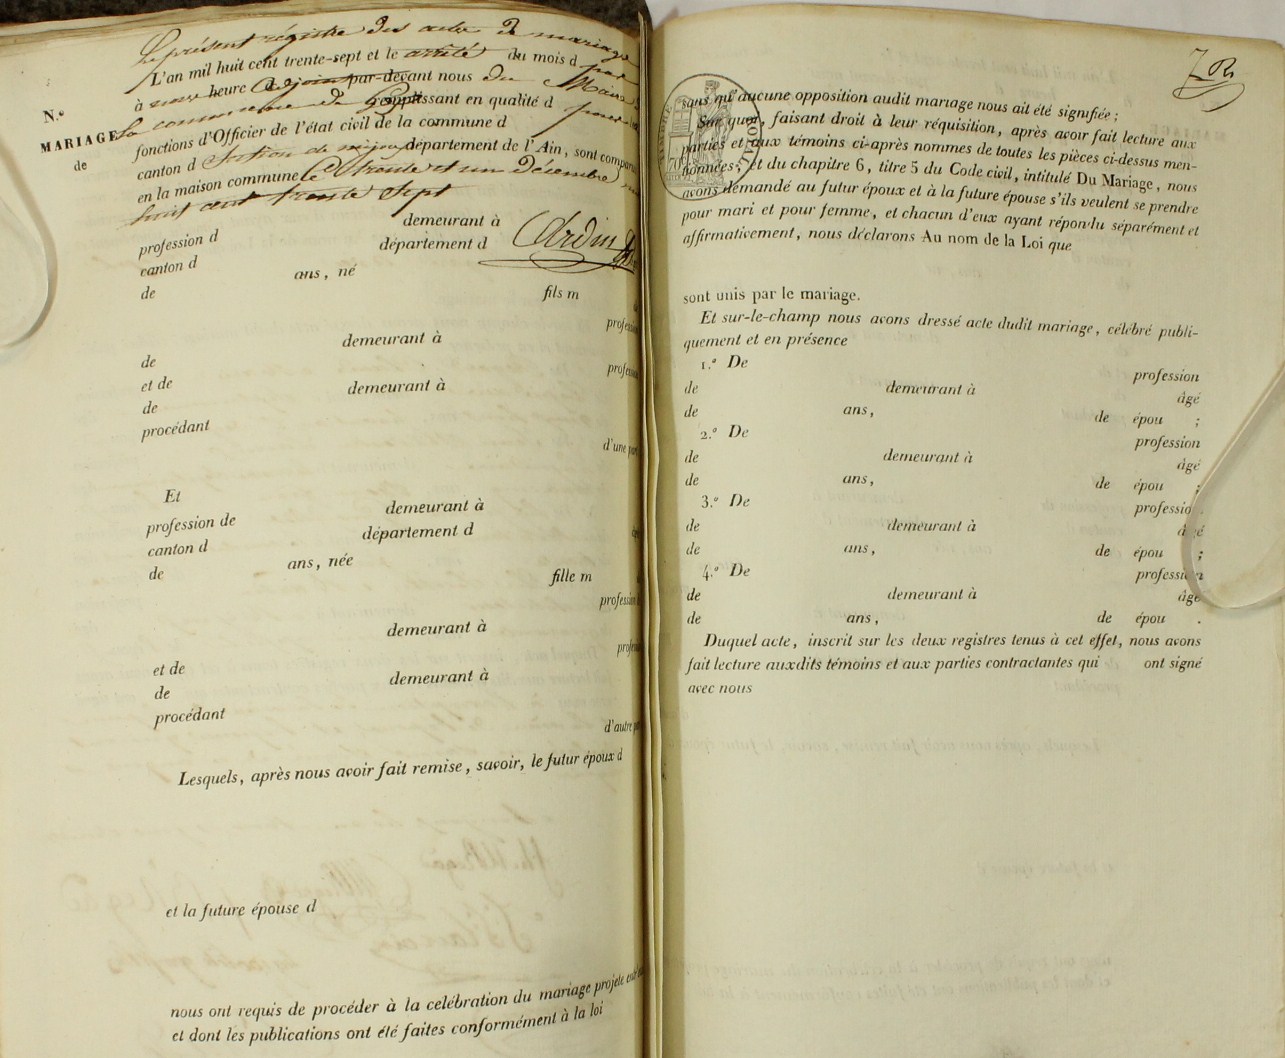 Le présent régistre des actes de mariage
L'an mil huit cent trente-sept et le arrêté du mois d par
à nous heure Adjoint par-devant nous du Maire
N.º
la commune de remplissant en qualité d pour
MARIAGE
fonctions d'Officier de l'état civil de la commune d
de
canton d Section de département de l'Ain, sont compar
en la maison commune le trente et un décembre mil
huit cent trente sept
demeurant à
profession d
département d
canton d
ans, né
de
fils m
profession
demeurant à
de
profession
et de
demeurant à
de
procédant
d'une par
Et
demeurant à
profession de
département d
canton d
ans, née
de
fille m
profession
demeurant à
profess
et de
demeurant à
de
procédant
d'autre par
Lesquels, après nous avoir fait remise, savoir, le futur époux d
et la future épouse d
nous ont requis de procéder à la celébration du mariage projeté entr
et dont les publications ont été faites conformément à la loi
sans qu'aucune opposition audit mariage nous ait été signifiée;
Sur quoi, faisant droit à leur réquisition, après avoir fait lecture aux
parties et aux témoins ci-après nommes de toutes les pièces ci-dessus men-
tionnées; et du chapitre 6, titre 5 du Code civil, intitulé Du Mariage, nous
avons demandé au futur époux et à la future épouse s'ils veulent se prendre
pour mari et pour femme, et chacun d'eux ayant répondu séparément et
affirmativement, nous déclarons Au nom de la Loi que
sont unis par le mariage.
Et sur-le-champ nous avons dressé acte dudit mariage, célébré publi-
quement et en présence
1.º De
profession
de demeurant à
âgé
de ans, de épou ;
2.º De
profession
de demeurant à
âgé
de ans, de épou ;
3.º De
profession
de demeurant à
âgé
de ans, de épou ;
4.º De
profession
de demeurant à
âgé
de ans, de épou .
Duquel acte, inscrit sur les deux registres tenus à cet effet, nous avons
fait lecture auxdits témoins et aux parties contractantes qui ont signé
avec nous